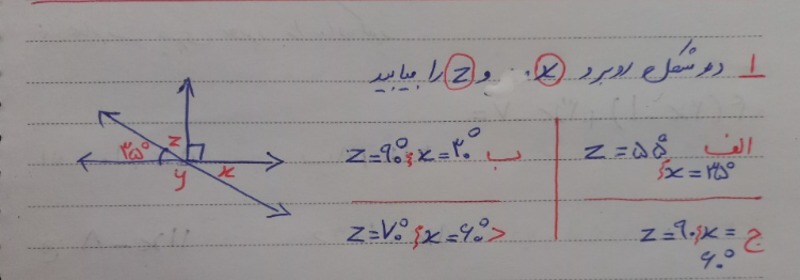 ۱ در شکل روبرو x و z را بیابید
z
۳۵°
y
x
الف z = ۵۵° { x = ۳۵°
ب z = ۹۰° { x = ۳۰°
ج z = ۹۰ { x = ۶۰°
د z = ۷۰° { x = ۶۰°